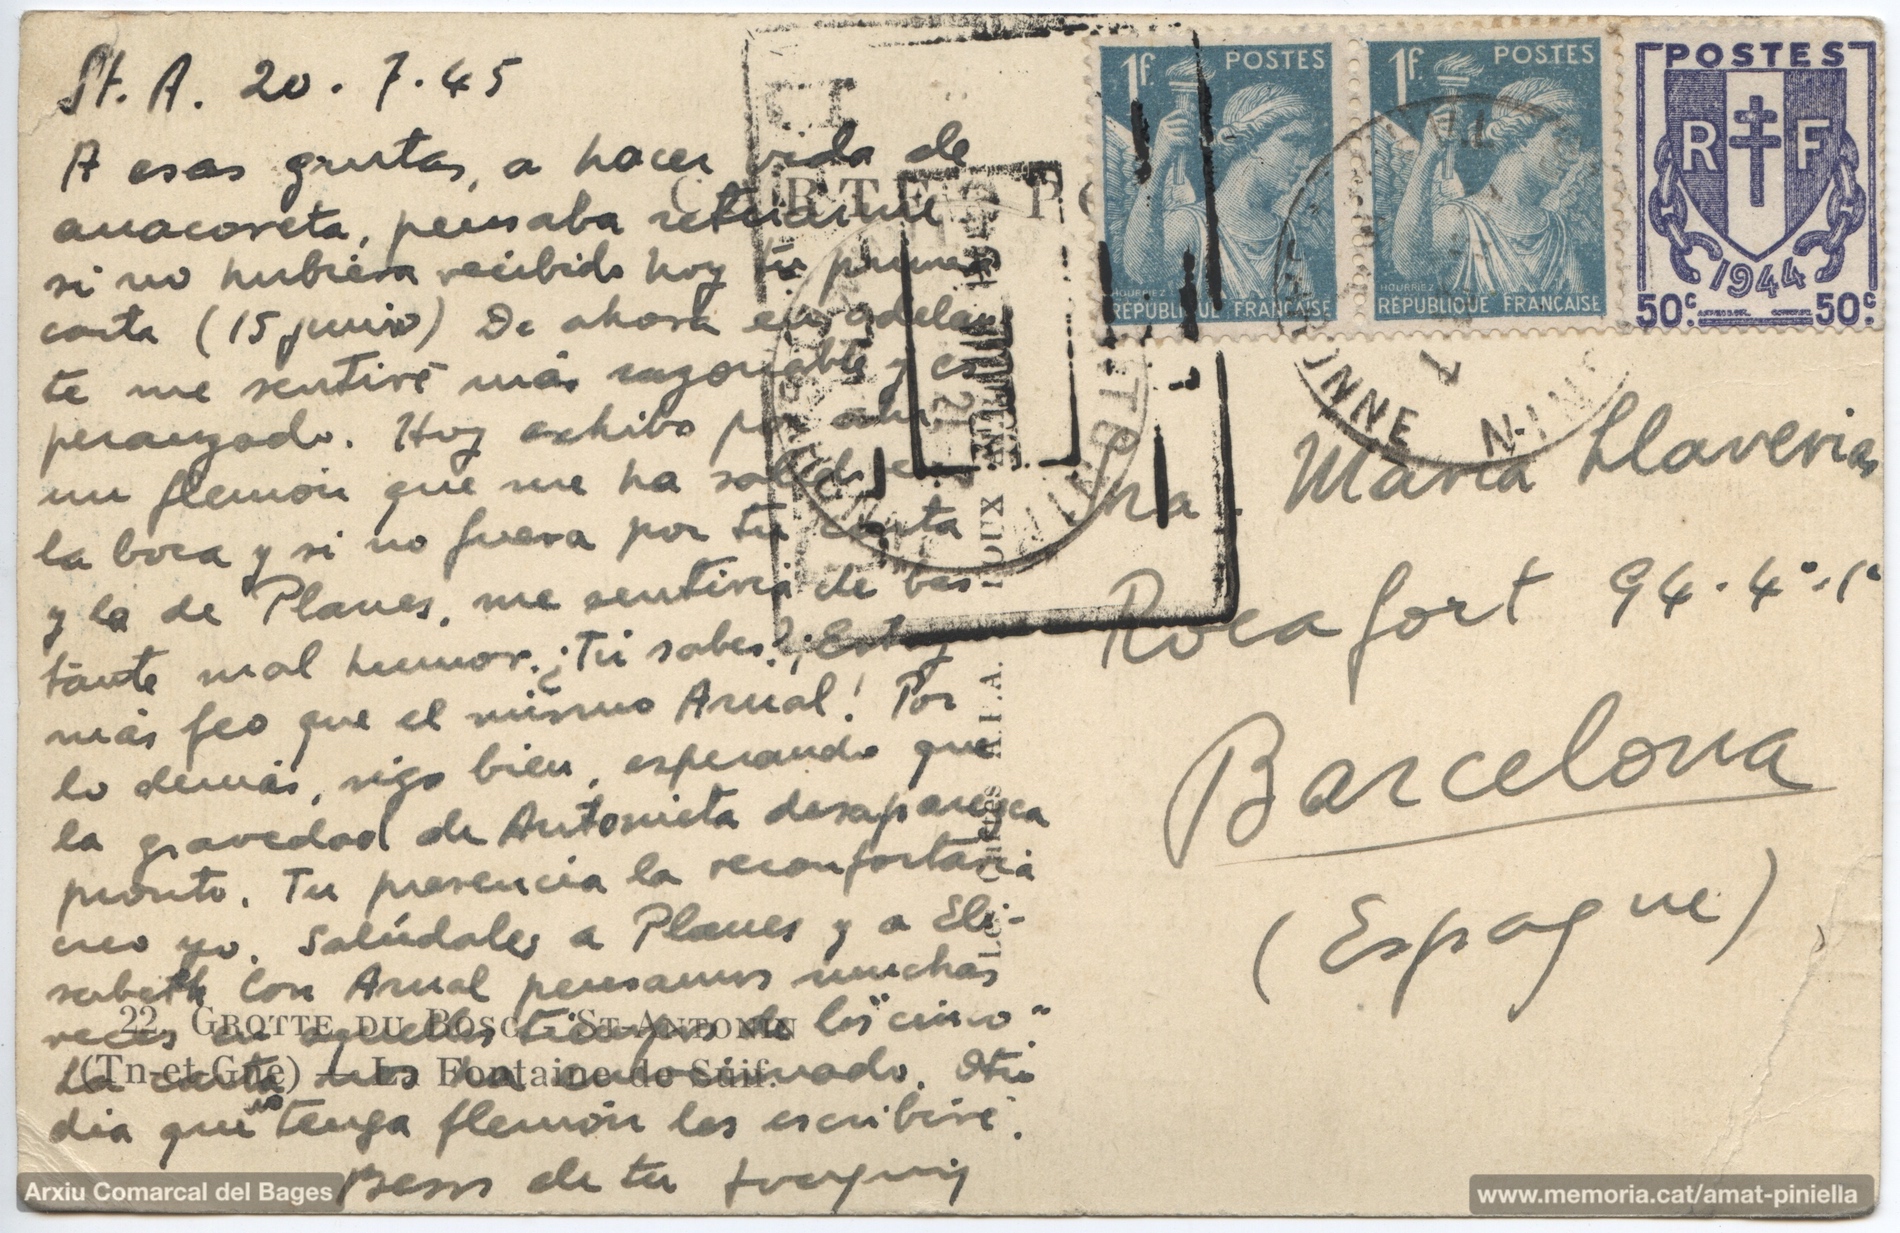 St. A. 20 . 7 . 45
A esas grutas, a hacer vida de
anacoreta, pensaba retirarme
si no hubiera recibido hoy tu primera
carta (15 junio) De ahora en adelan
te me sentiré más razonable y es
peranzado. Hoy exhibo por aquí
un flemón que me ha salido en
la boca y si no fuera por tu carta
y la de Planes, me sentiría de bas
tante mal humor. ¿Tú sabes? ¡Estoy
más feo que el mismo Arnal! Por
lo demás, sigo bien, esperando que
la gravedad de Antonieta desaparezca
pronto. Tu presencia la reconfortaría
creo yo. Salúdales a Planes y a Eli-
sabeth Con Arnal pensamos muchas
veces en aquellos tiempos de los "cinco"
La carta nos ha emocionado. Otro
dia que no tenga flemón les escribiré.
Besos de tu Joaquin
22. GROTTE DU BOSC - ST-ANTONIN
(Tn-et-Gne) — La Fontaine de Suif.
CARTE PO
ROUX
POSTES
1f.
HOURRIEZ
RÉPUBLIQUE FRANÇAISE
POSTES
1f.
HOURRIEZ
RÉPUBLIQUE FRANÇAISE
POSTES
R F
1944
50c. 50c
ONNE
NIN
Sra. Maria Llaverias
Rocafort 94 . 4º . 1ª
Barcelona
(Espagne)
Arxiu Comarcal del Bages
www.memoria.cat/amat-piniella